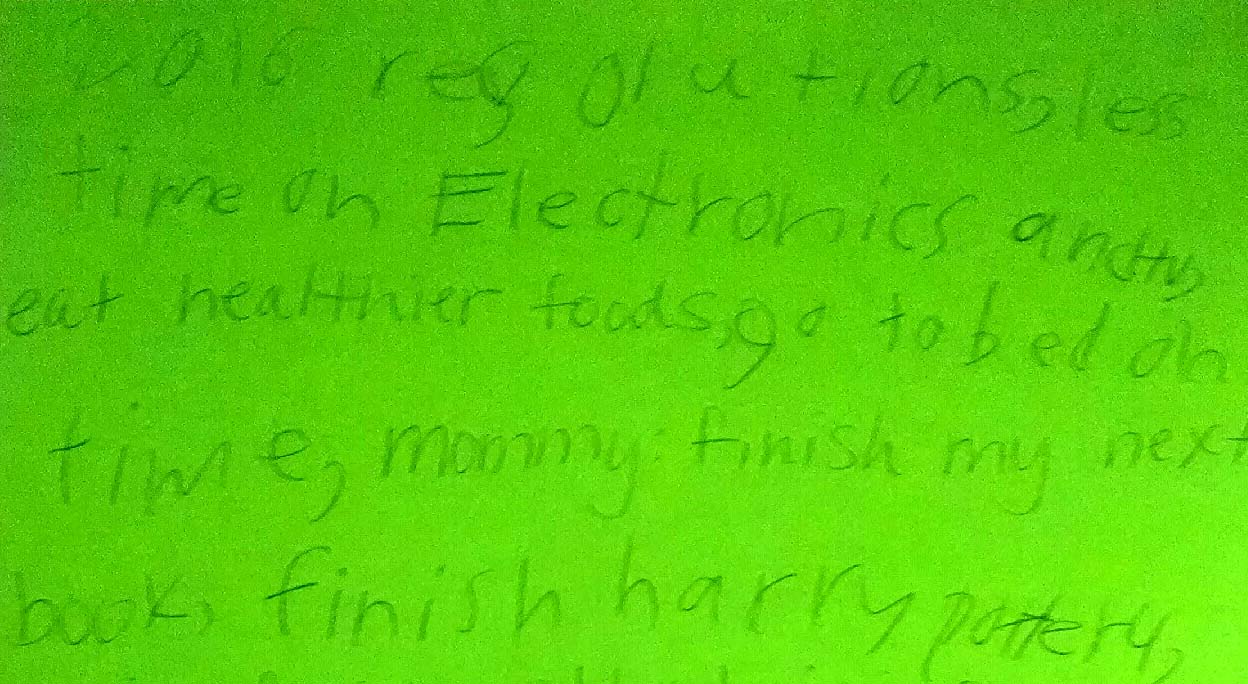 2016 resolutions, less
time on Electronics and tv,
eat healthier foods, go to bed on
time, mommy: finish my next
book, finish harry potter 4,